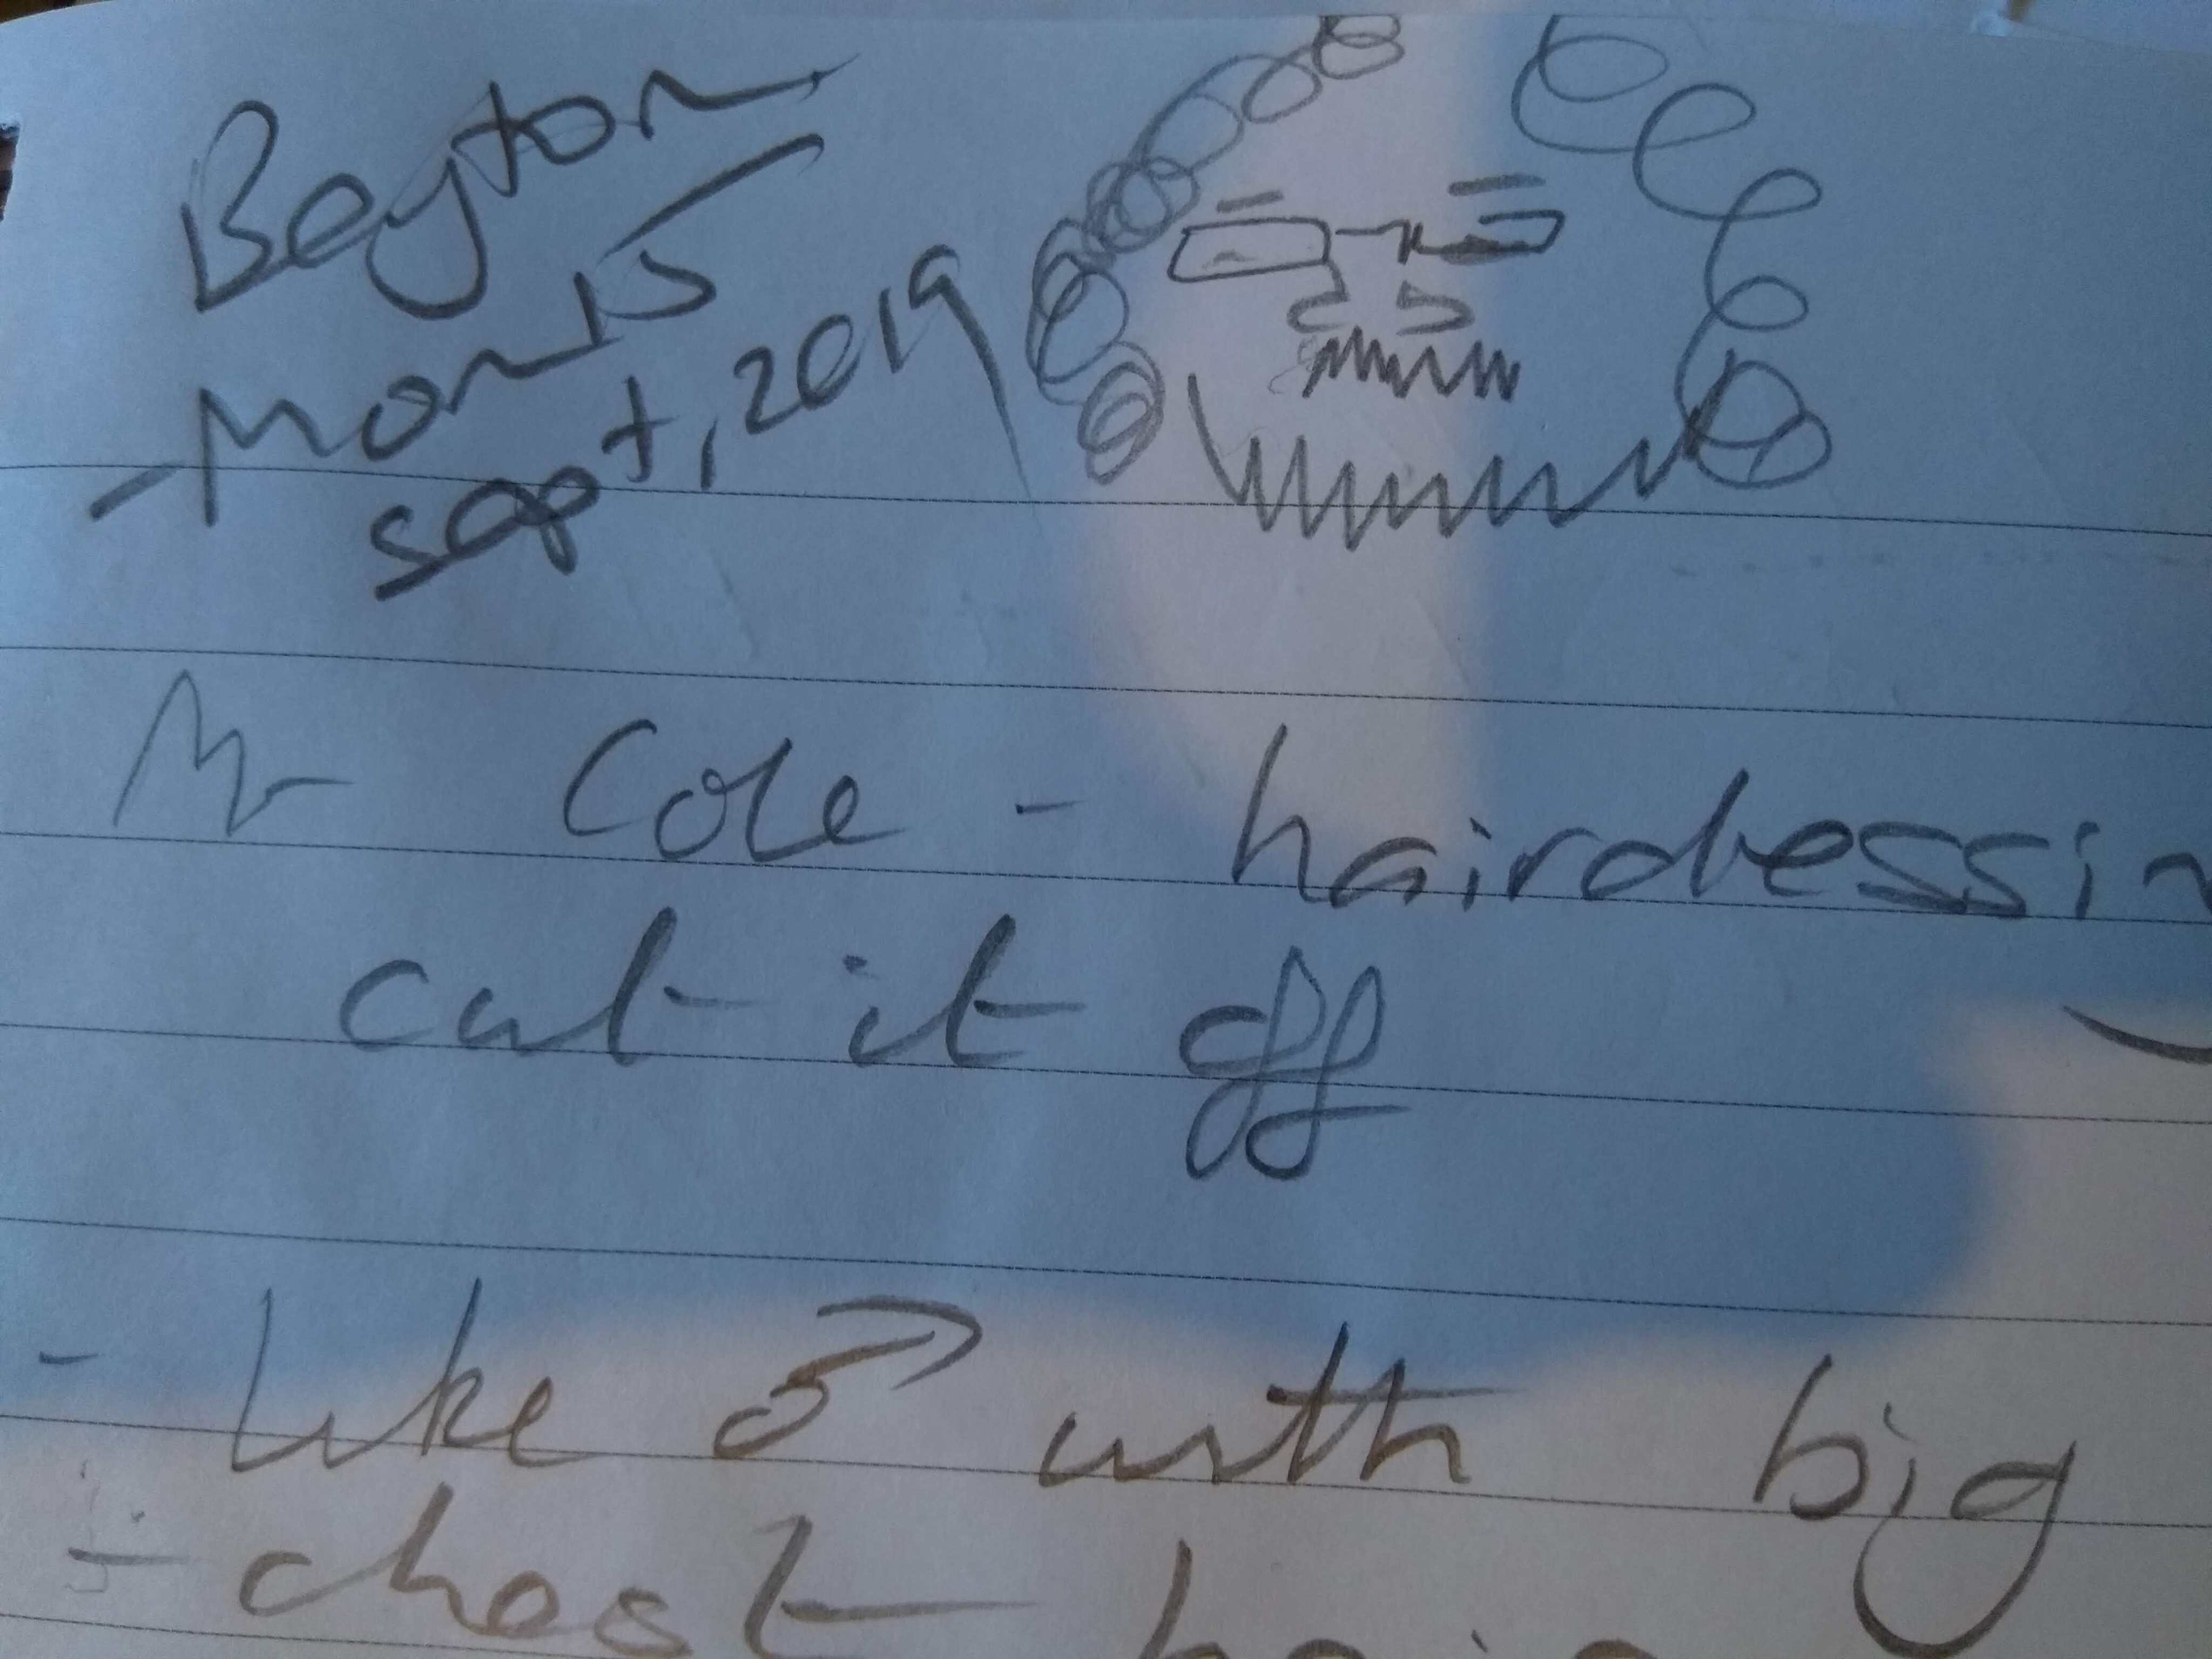 Beyton
- Morris
sept, 2019
Mr Cole - hairdressin
cut it off
- like ♂ with big
- chest hair